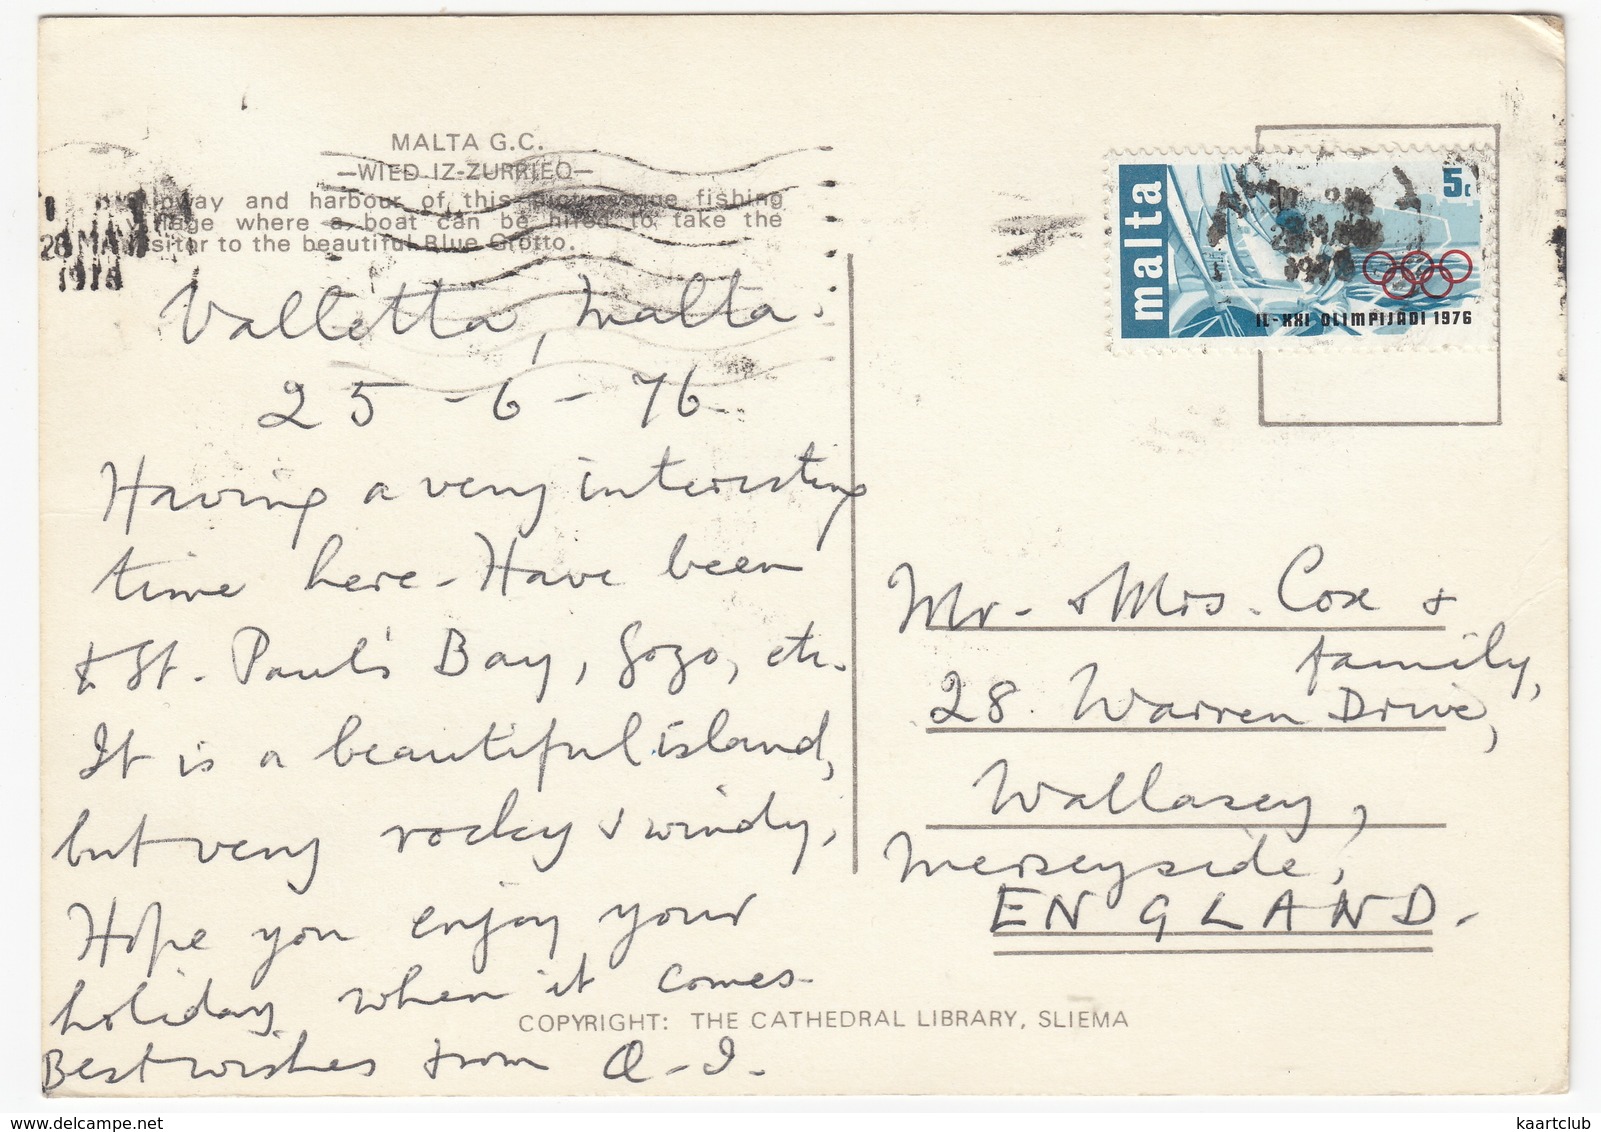 MALTA G.C.
—WIED IZ-ZURRIEQ—
and harbour of this picturesque fishing
where a boat can be hired to take the
to the beautiful Blue Grotto.
1976
malta
5c
IL-XXI OLIMPIJADI 1976
Valletta, Malta.
25-6-76
Having a very interesting
time here - Have been
to St. Paul's Bay, Gozo, etc.
It is a beautiful island,
but very rocky & windy.
Hope you enjoy your
holiday when it comes.
Best wishes from
Mr. & Mrs. Cox &
family,
28 Warren Drive,
Wallasey,
Merseyside,
ENGLAND.
COPYRIGHT: THE CATHEDRAL LIBRARY, SLIEMA
kaartclub